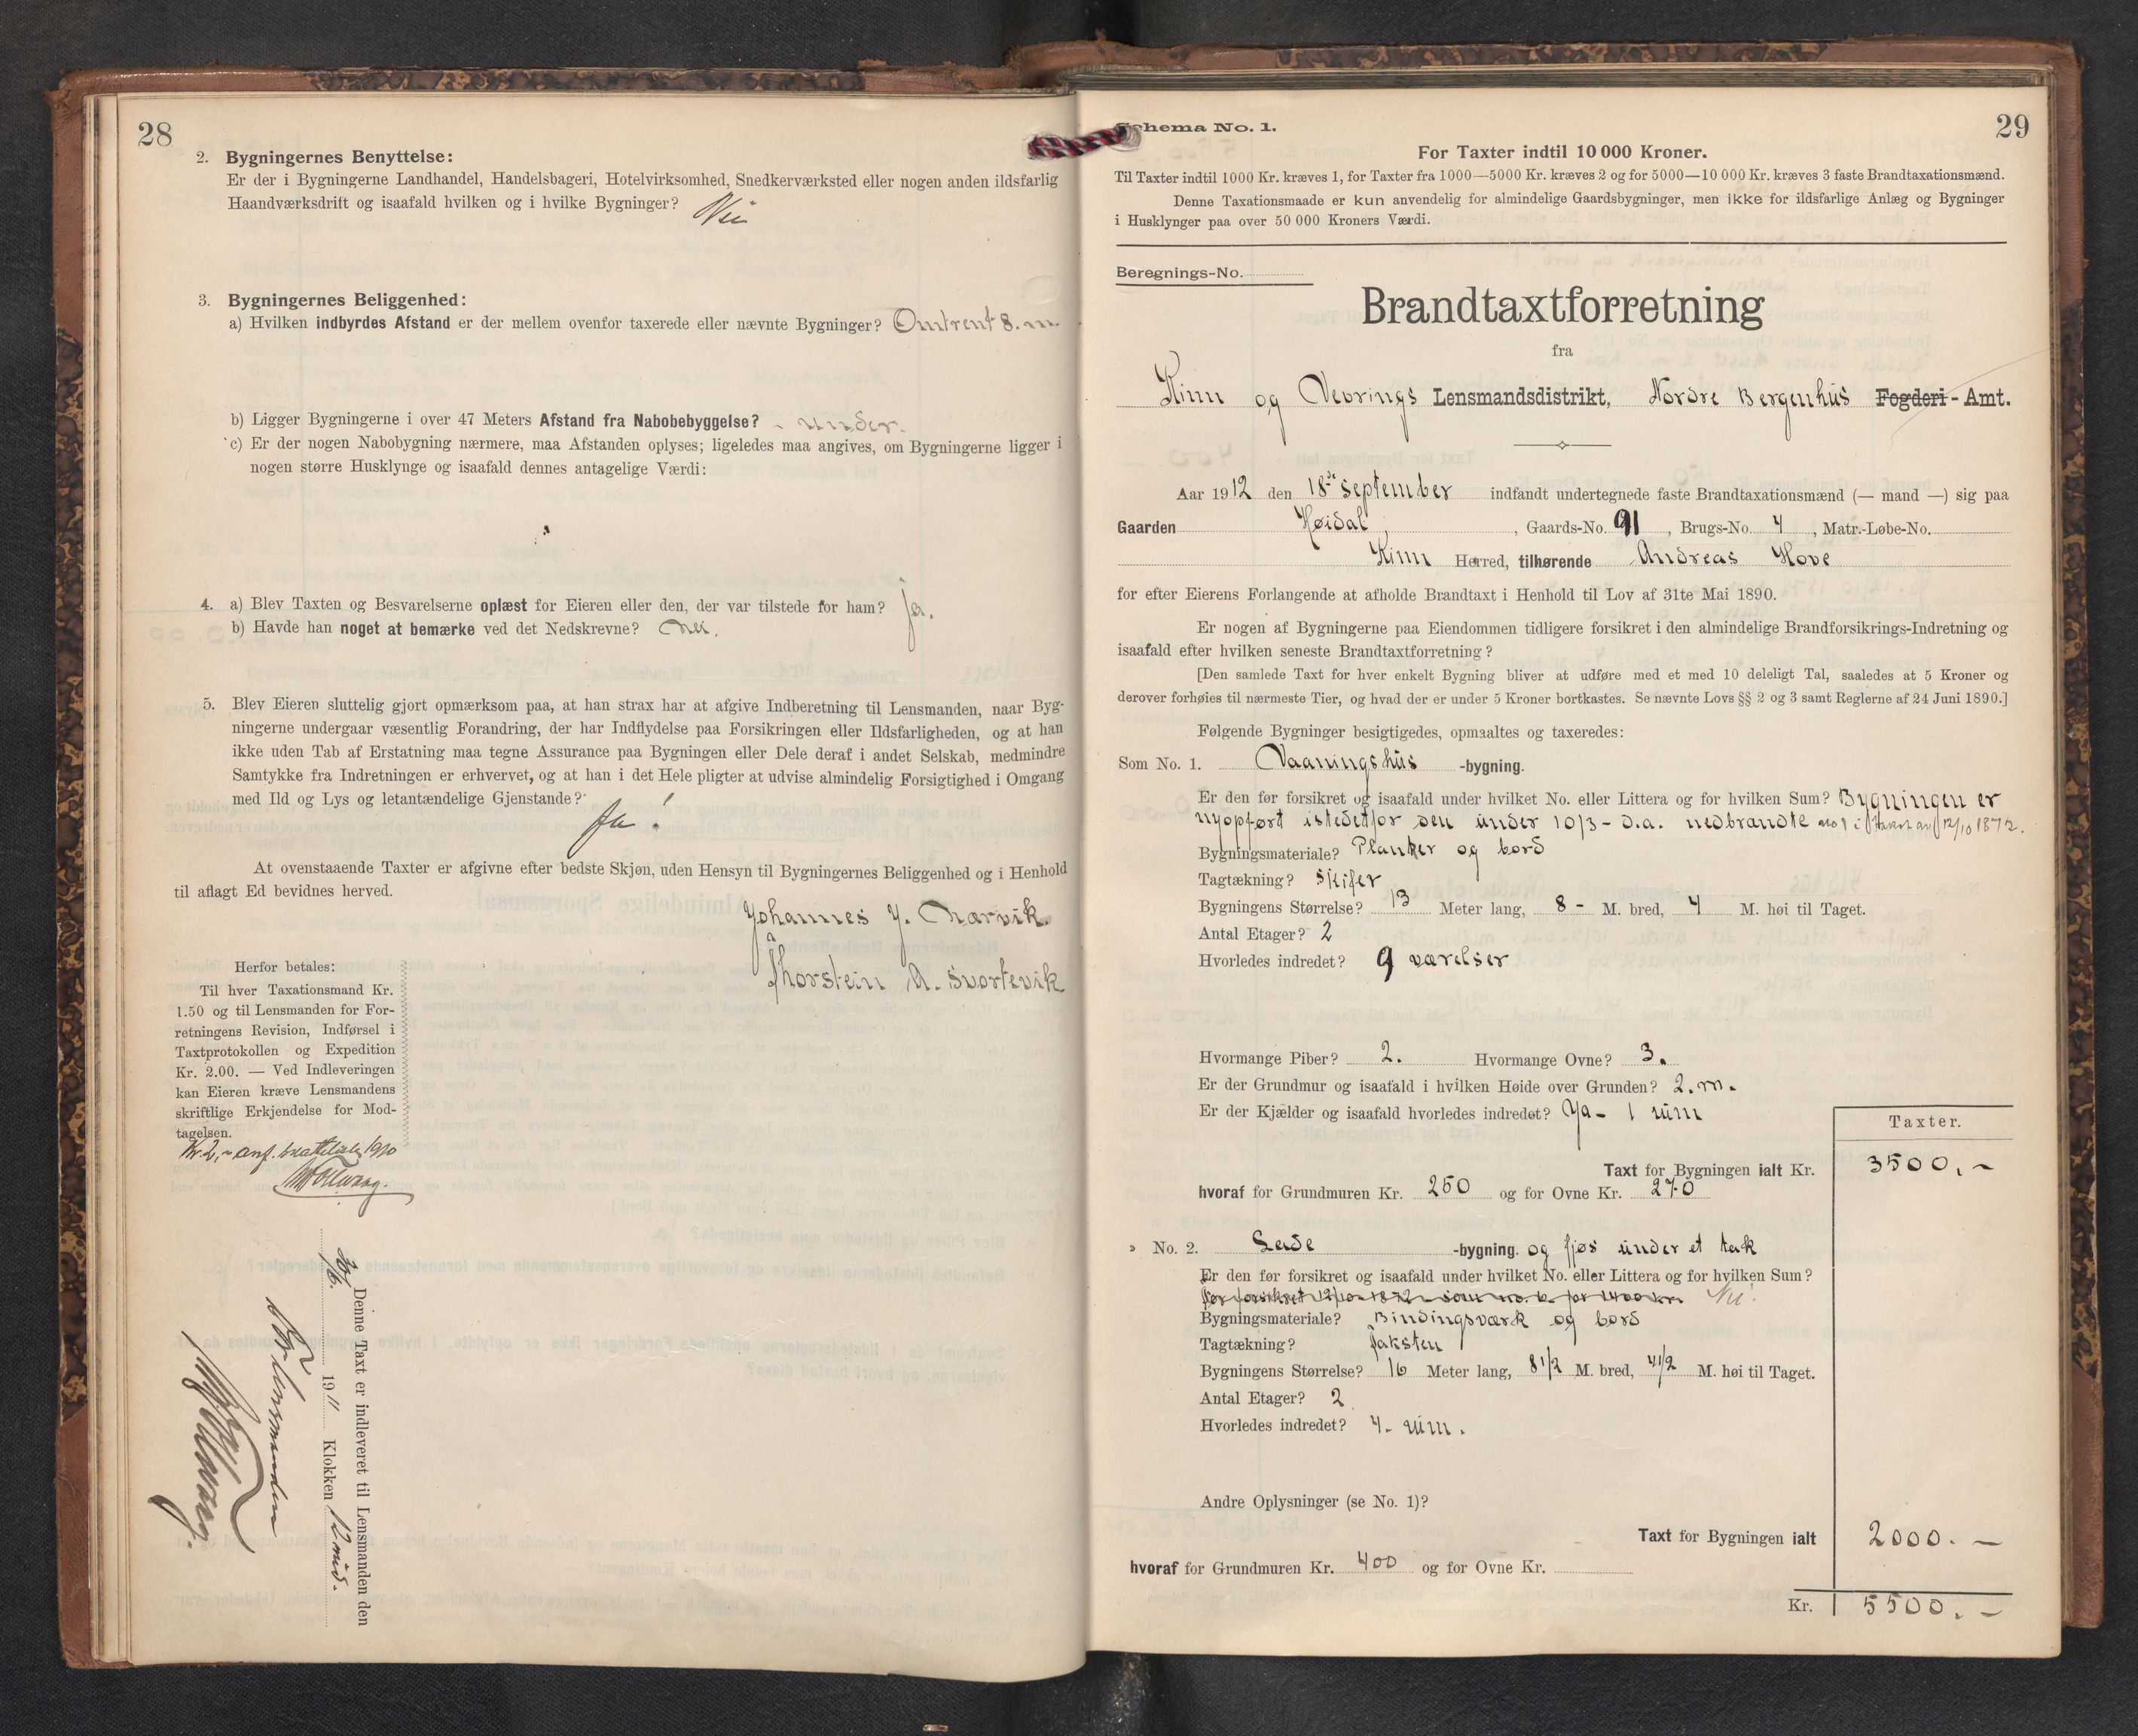 28
2. Bygningernes Benyttelse:
Er der i Bygningerne Landhandel, Handelsbageri, Hotelvirksomhed, Snedkerværksted eller nogen anden ildsfarlig
Haandværksdrift og isaafald hvilken og i hvilke Bygninger? Nei
3. Bygningernes Beliggenhed:
a) Hvilken indbyrdes Afstand er der mellem ovenfor taxerede eller nævnte Bygninger? Omtrent 8. m.
b) Ligger Bygningerne i over 47 Meters Afstand fra Nabobebyggelse? - under.
c) Er der nogen Nabobygning nærmere, maa Afstanden oplyses; ligeledes maa angives, om Bygningerne ligger i
nogen større Husklynge og isaafald dennes antagelige Værdi:
4. a) Blev Taxten og Besvarelserne oplæst for Eieren eller den, der var tilstede for ham? ja.
b) Havde han noget at bemærke ved det Nedskrevne? Nei.
5. Blev Eieren sluttelig gjort opmærksom paa, at han strax har at afgive Indberetning til Lensmanden, naar Byg-
ningerne undergaar væsentlig Forandring, der har Indflydelse paa Forsikringen eller Ildsfarligheden, og at han
ikke uden Tab af Erstatning maa tegne Assurance paa Bygningen eller Dele deraf i andet Selskab, medmindre
Samtykke fra Indretningen er erhvervet, og at han i det Hele pligter at udvise almindelig Forsigtighed i Omgang
med Ild og Lys og letantændelige Gjenstande?
Ja!
At ovenstaaende Taxter er afgivne efter bedste Skjøn, uden Hensyn til Bygningernes Beliggenhed og i Henhold
til aflagt Ed bevidnes herved.
Johannes J. Narvik.
Thorstein A. Svortevik
Herfor betales:
Til hver Taxationsmand Kr.
1.50 og til Lensmanden for For-
retningens Revision, Indførsel i
Taxtprotokollen og Expedition
Kr. 2.00. — Ved Indleveringen
kan Eieren kræve Lensmandens
skriftlige Erkjendelse for Mod-
tagelsen.
Kr. 2,-
Denne Taxt er indleveret til Lensmanden den
1911 Klokken 12 mid.
Lensmanden
29
Schema No. 1.
For Taxter indtil 10 000 Kroner.
Til Taxter indtil 1000 Kr. kræves 1, for Taxter fra 1000—5000 Kr. kræves 2 og for 5000—10 000 Kr. kræves 3 faste Brandtaxationsmænd.
Denne Taxationsmaade er kun anvendelig for almindelige Gaardsbygninger, men ikke for ildsfarlige Anlæg og Bygninger
i Husklynger paa over 50 000 Kroners Værdi.
Beregnings-No.
Brandtaxtforretning
fra
Kinn og Vevrings Lensmandsdistrikt, Nordre Bergenhus Fogderi - Amt.
Aar 1912 den 18de september indfandt undertegnede faste Brandtaxationsmænd (— mand —) sig paa
Gaarden Høidal, Gaards-No. 91, Brugs-No. 4, Matr.-Løbe-No.
Kinn Herred, tilhørende Andreas Hove
for efter Eierens Forlangende at afholde Brandtaxt i Henhold til Lov af 31te Mai 1890.
Er nogen af Bygningerne paa Eiendommen tidligere forsikret i den almindelige Brandforsikrings-Indretning og
isaafald efter hvilken seneste Brandtaxtforretning?
[Den samlede Taxt for hver enkelt Bygning bliver at udføre med et med 10 deleligt Tal, saaledes at 5 Kroner og
derover forhøies til nærmeste Tier, og hvad der er under 5 Kroner bortkastes. Se nævnte Lovs §§ 2 og 3 samt Reglerne af 24 Juni 1890.]
Følgende Bygninger besigtigedes, opmaaltes og taxeredes:
Som No. 1. Vaaningshus -bygning.
Er den før forsikret og isaafald under hvilket No. eller Littera og for hvilken Sum? Bygningen er
nyopført istedetfor den under 10/3 - d.a. nedbrandte no 1 i takst av 12/10 1872.
Bygningsmateriale? Planker og bord
Tagtækning? Skifer
Bygningens Størrelse? 13 Meter lang, 8 - M. bred, 4 M. høi til Taget.
Antal Etager? 2
Hvorledes indredet? 9 værelser
Hvormange Piber? 2. Hvormange Ovne? 3.
Er der Grundmur og isaafald i hvilken Høide over Grunden? 2. m.
Er der Kjælder og isaafald hvorledes indredet? Ja - 1 rum
Taxter.
Taxt for Bygningen ialt Kr. 3500. -
hvoraf for Grundmuren Kr. 250 og for Ovne Kr. 270
» No. 2. Lade -bygning. og fjøs under et tak
Er den før forsikret og isaafald under hvilket No. eller Littera og for hvilken Sum?
Før forsikret 12/10-1872 som no. 6 for 1400 kr. Nei.
Bygningsmateriale? Bindingsværk og bord
Tagtækning? Taksten
Bygningens Størrelse? 16 Meter lang, 8 1/2 M. bred, 4 1/2 M. høi til Taget.
Antal Etager? 2
Hvorledes indredet? 4 - rum.
Andre Oplysninger (se No. 1)?
Taxt for Bygningen ialt 2000. -
hvoraf for Grundmuren Kr. 400 og for Ovne Kr.
Kr. 5500. -